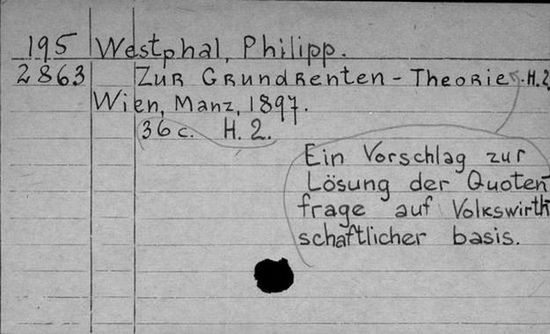 195 Westphal, Philipp.
2863 Zur Grundrenten - Theorie. H.2
Wien, Manz, 1897.
36 c. H. 2.
Ein Vorschlag zur
Lösung der Quoten-
frage auf Volkswirth
schaftlicher basis.